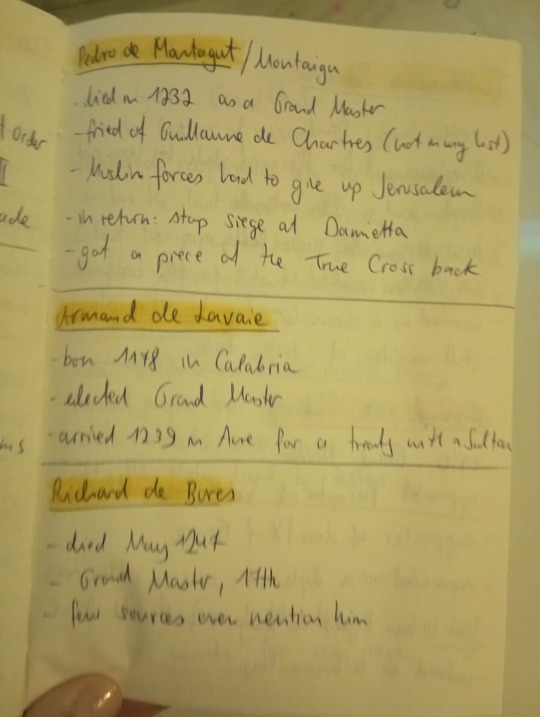 t order
II
ade
ms
Pedro de Mantagut / Montaigu
- died in 1232 as a Grand Master
- fried of Guillaume de Chartres (not in my list)
- Muslim forces had to give up Jerusalem
- in return: stop siege at Damietta
- got a piece of the True Cross back
Armand de Lavoie
- born 1178 in Calabria
- elected Grand Master
- arrived 1239 in Acre for a treaty with a Sultan
Richard de Bures
- died May 1247
- Grand Master, 17th
- few sources even mention him